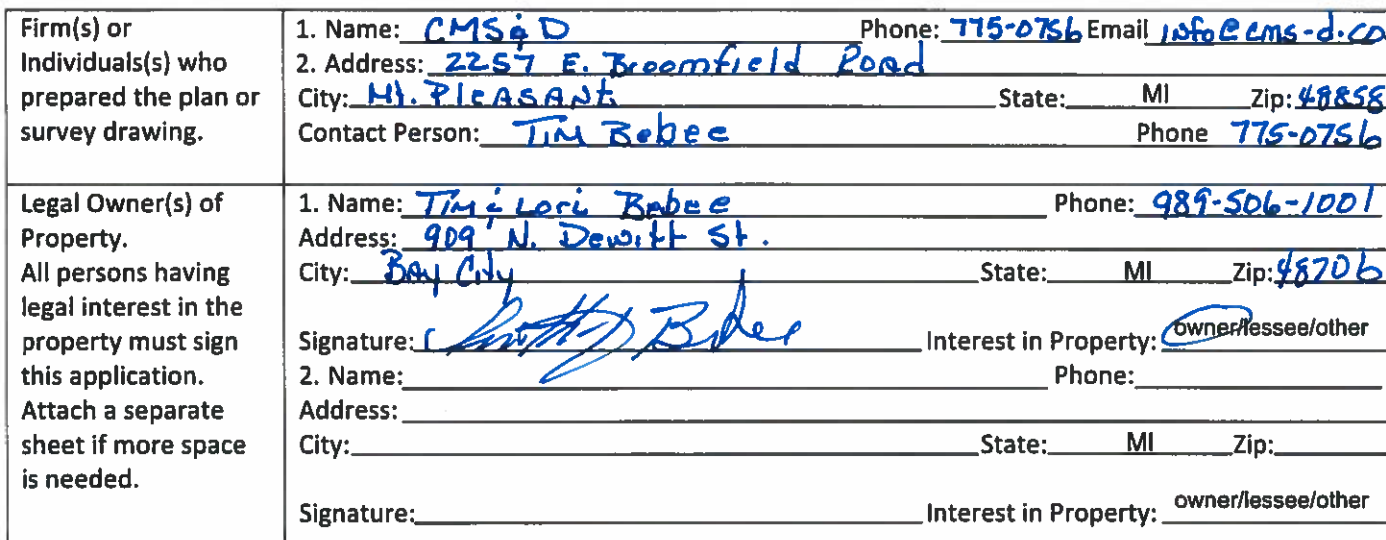 Firm(s) or
Individuals(s) who
prepared the plan or
survey drawing.
1. Name: CMS & D Phone: 775-0756 Email info@cms-d.co
2. Address: 2257 E. Broomfield Road
City: Mt. Pleasant State: MI Zip: 48858
Contact Person: Tim Bebee Phone 775-0756
Legal Owner(s) of
Property.
All persons having
legal interest in the
property must sign
this application.
Attach a separate
sheet if more space
is needed.
1. Name: Tim & Lori Bebee Phone: 989-506-1001
Address: 909 N. Dewitt St.
City: Bay City State: MI Zip: 48706
Signature: Bebee Interest in Property: owner/lessee/other
2. Name: Phone:
Address:
City: State: MI Zip:
Signature: Interest in Property: owner/lessee/other